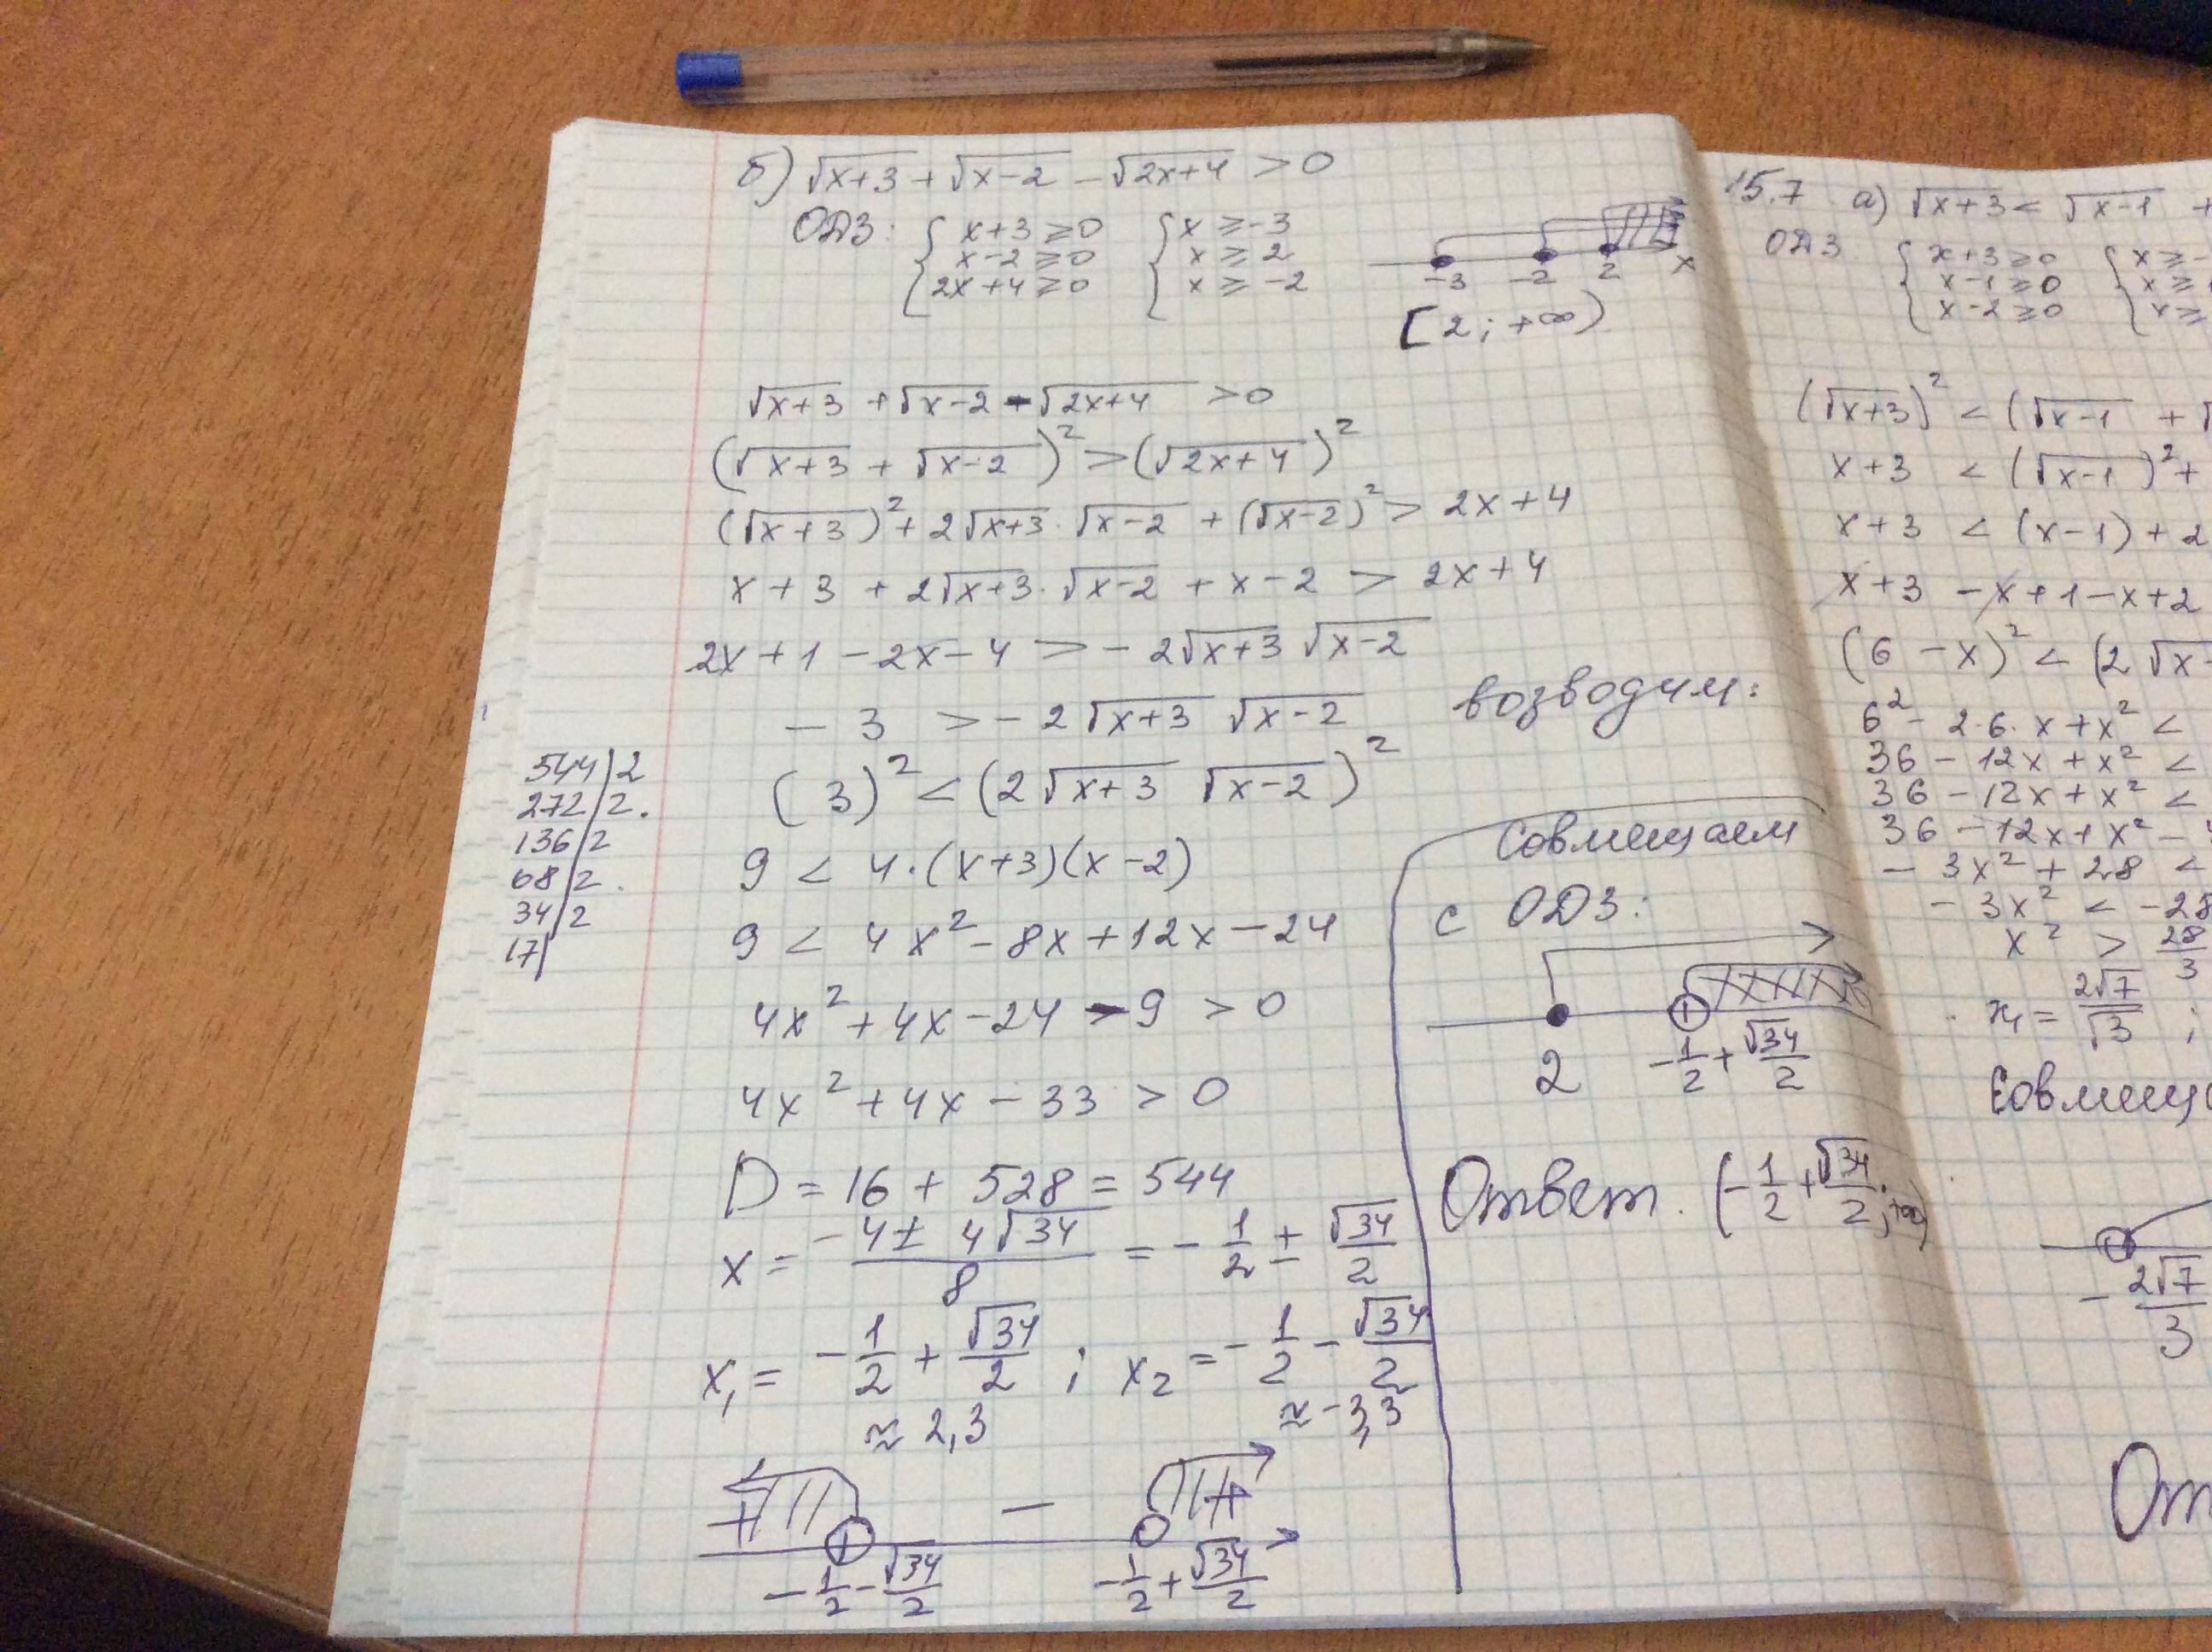 б) √x+3 + √x-2 - √2x+4 > 0
ОДЗ: { x+3 ≥ 0 { x ≥ -3
x-2 ≥ 0 x ≥ 2
2x+4 ≥ 0 x ≥ -2
-3 -2 2 x
[2; +∞)
√x+3 + √x-2 - √2x+4 > 0
(√x+3 + √x-2)² > (√2x+4)²
(√x+3)² + 2√x+3 · √x-2 + (√x-2)² > 2x+4
x + 3 + 2√x+3 · √x-2 + x - 2 > 2x+4
2x + 1 - 2x - 4 > - 2√x+3 √x-2
- 3 > - 2√x+3 √x-2
возводим:
(3)² < (2√x+3 √x-2)²
9 < 4·(x+3)(x-2)
9 < 4x² - 8x + 12x - 24
4x² + 4x - 24 - 9 > 0
4x² + 4x - 33 > 0
D = 16 + 528 = 544
x = -4 ± 4√34 / 8 = - 1/2 ± √34/2
x₁ = - 1/2 + √34/2 ; x₂ = - 1/2 - √34/2
≈ 2,3 ≈ -3,3
+ - +
- 1/2 - √34/2 - 1/2 + √34/2
544 | 2
272 | 2.
136 | 2
68 | 2.
34 | 2
17 |
Совмещаем
с ОДЗ:
2 - 1/2 + √34/2
Ответ. (- 1/2 + √34/2; +∞)
15.7 а) √x+3 < √x-1 +
ОДЗ { x+3 ≥ 0 { x ≥ -
x-1 ≥ 0 x ≥
x-2 ≥ 0 x ≥
(√x+3)² < (√x-1 +
x+3 < (√x-1)² +
x+3 < (x-1) + 2
x+3 - x + 1 - x + 2
(6 - x)² < (2√x-
6² - 2·6·x + x² <
36 - 12x + x² <
36 - 12x + x² <
36 - 12x + x² -
- 3x² + 28 <
- 3x² < -28
x² > 28/3
x₁ = 2√7/√3 ;
Совмещ
- 2√7/3
От